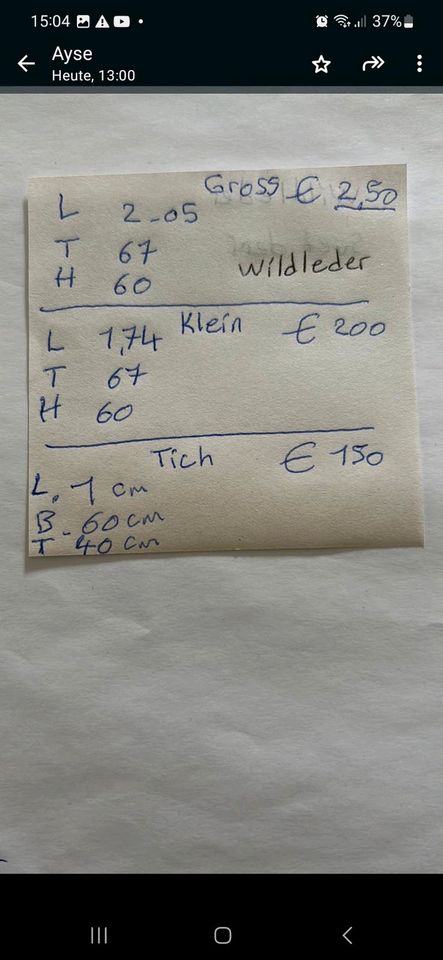 15:04 37%
Ayse
Heute, 13:00
Gross € 2,50
L 2-05
T 67
Wildleder
H 60
L 1,74 Klein € 200
T 67
H 60
Tich € 150
L. 1 cm
B - 60 cm
T - 40 cm